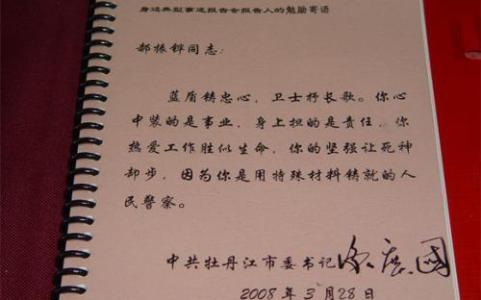 身边典型事迹报告会报告人的勉励寄语
郝振铎同志:
蓝盾铸忠心,卫士抒长歌。你心
中装的是事业,身上担的是责任,你
热爱工作胜似生命,你的坚强让死神
却步,因为你是用特殊材料铸就的人
民警察。
中共牡丹江市委书记
2008 年 3 月 28 日